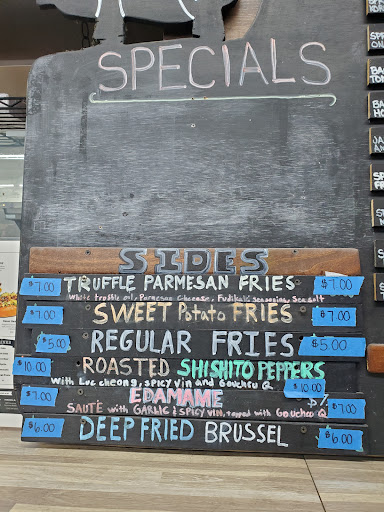 SPECIALS
SIDES
$7.00 TRUFFLE PARMESAN FRIES $7.00
White truffle oil, Parmesan Cheese, Fudikals seasoning, Sea salt
$7.00 SWEET Potato FRIES $7.00
$5.00 REGULAR FRIES $5.00
$10.00 ROASTED SHISHITO PEPPERS
With Lap cheong, spicy vin and Gouchu Q $10.00
$7.00 EDAMAME $7.00
SAUTE with GARLIC & SPICY VIN, topped with Gouchu Q
$6.00 DEEP FRIED BRUSSEL $6.00